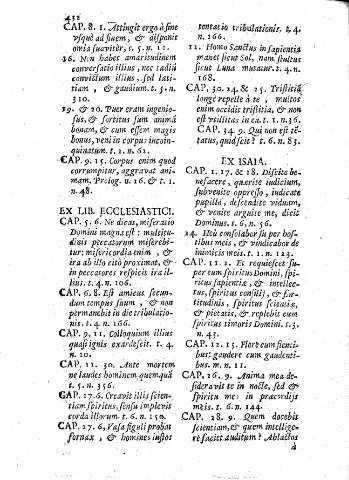 432
CAP. 8. 1. Attingit ergo à fine
vsque ad finem, & disponit
omnia suaviter, t. 5. n. 11.
16. Non habet amaritudinem
conversatio illius, nec tædiũ
convictum illius, sed læti-
tiam, & gaudium. t. 5. n.
310.
19. & 20. Puer eram ingenio-
sus, & sortitus sum animã
bonam, & cum essem magis
bonus, veni in corpus incoin-
quinatum. t. 2. n. 61.
CAP. 9. 15. Corpus enim quod
corrumpitur, aggravat ani-
mam. Prolog. n. 16. & t. 1.
n. 48.
EX LIB. ECCLESIASTICI.
CAP. 5. 6. Ne dicas, miseratio
Domini magna est: multitu-
dinis peccatorum miserebi-
tur: misericordia enim, &
ira ab illo citò proximat, &
in peccatores respicit ira il-
lius. t. 4. n. 106.
CAP. 6. 8. Est amicus secun-
dum tempus suum, & non
permanebit in die tribulatio-
nis. t. 4. n. 166.
CAP. 9. 11. Colloquium illius
quasi ignis exardescit. t. 4.
n. 10.
CAP. 11. 30. Ante mortem
ne laudes hominem quemquã
t. 5. n. 356.
CAP. 17. 6. Creavit illis scien-
tiam spiritus, sensu implevit
corda illorum. t. 6. n. 150.
CAP. 27. 6. Vasa figuli probat
fornax, & homines iustos
tentatio tribulationis. t. 4.
n. 166.
12. Homo Sanctus in sapientia
manet sicut Sol, nam stultus
sicut Luna mutatur. t. 4. n.
168.
CAP. 30. 24. & 25. Tristitiã
longè repelle à te, multos
enim occidit tristitia, & non
est vtilitas in ea. t. 1. n. 83.
CAP. 34. 9. Qui non est tẽ-
tatus, quid scit? t. 6. n. 81.
EX ISAIA.
CAP. 1. 17. & 18. Discite be-
nefacere, quærite iudicium,
subvenite oppresso, iudicate
pupillo, descendite viduam,
& venite arguite me, dicit
Dominus. t. 6. n. 56.
24. Heù consolabor super hos-
tibus meis, & vindicabor de
inimicis meis. t. 1. n. 123.
CAP. 11. 2. Et requiescet su-
per eum spiritus Domini, spi-
ritus sapientiæ, & intellec-
tus, spiritus consilij, & for-
titudinis, spiritus scientiæ,
& pietatis, & replebit eum
spiritus timoris Domini. t. 3.
n. 43.
CAP. 12. 15. Flere cum flenti-
bus: gaudere cum gaudenti-
bus. m. n. 11.
CAP. 26. 9. Anima mea de-
sideravit te in nocte, sed &
spiritu meo in præcordijs
meis. t. 6. n. 144.
CAP. 28. 9. Quem docebit
scientiam, & quem intellige-
re faciet auditum? Ablactos
à